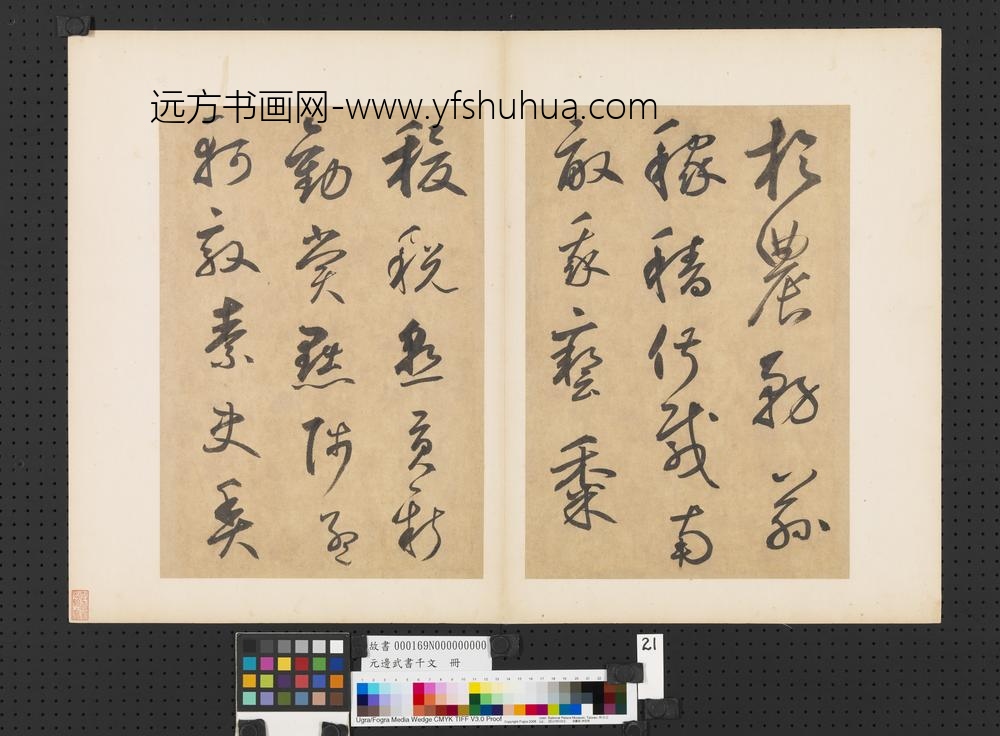 远方书画网-www.yfshuhua.com
於農務茲
稼穡俶載南
畝我藝黍
稷稅熟貢新
勸賞黜陟孟
軻敦素史魚
故書 000169N000000000
元邊武書千文 冊
21
Ugra/Fogra Media Wedge CMYK TIFF V3.0 Proof